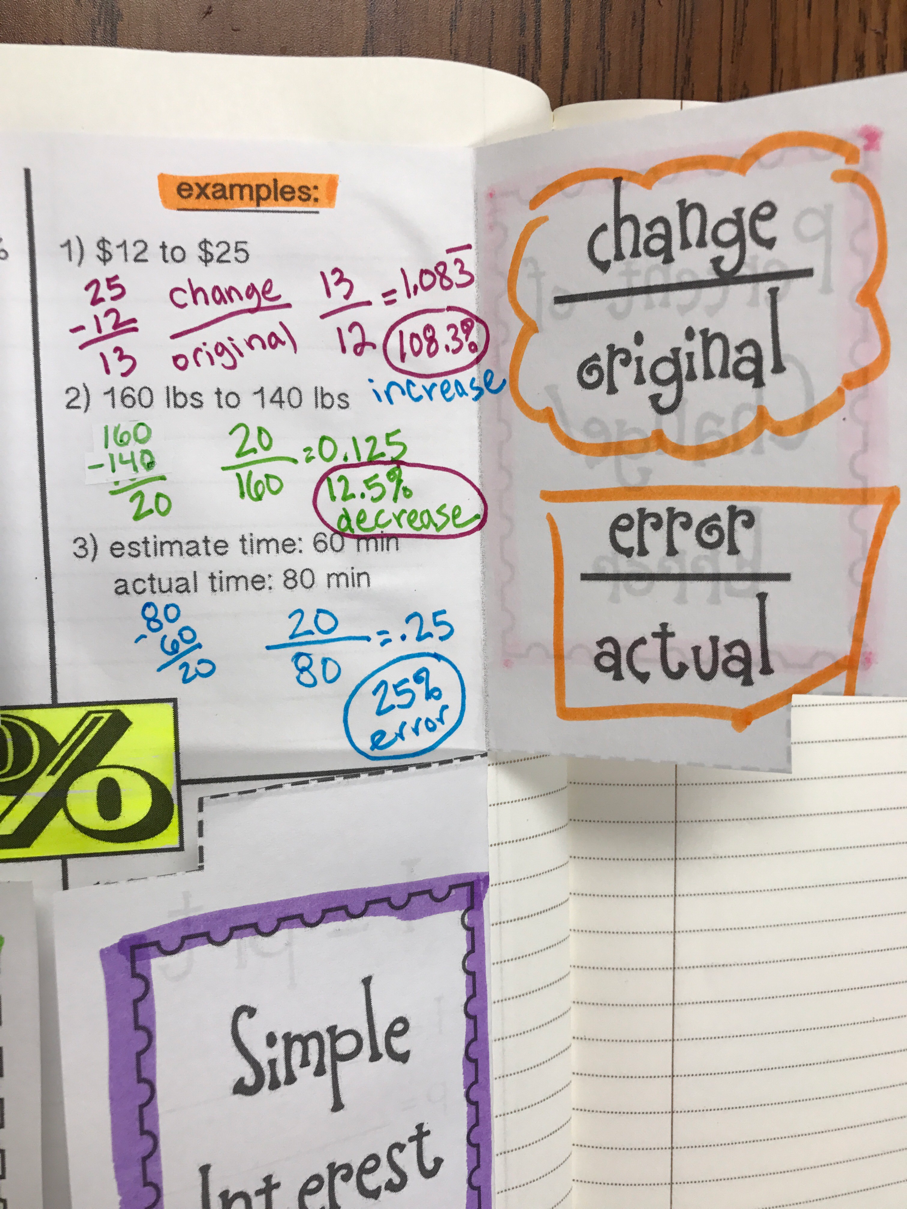 examples:
1) $12 to $25
25
-12
13
change
original
13
12
=1.083̅
108.3%
increase
2) 160 lbs to 140 lbs
160
-140
20
20
160
=0.125
12.5%
decrease
3) estimate time: 60 min
actual time: 80 min
80
-60
20
20
80
=.25
25%
error
change
original
error
actual
%
Simple
Interest